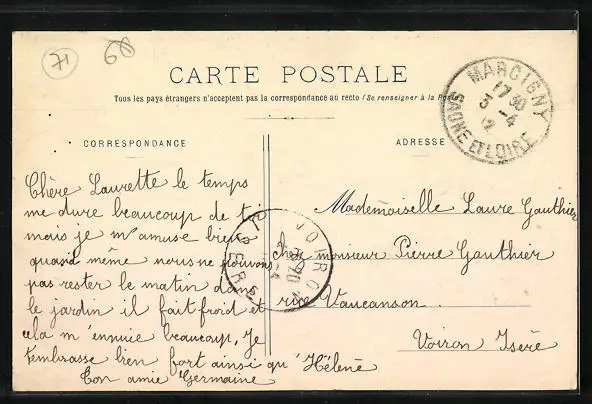 71
68
CARTE POSTALE
Tous les pays étrangers n'acceptent pas la correspondance au recto / Se renseigner à la Poste
CORRESPONDANCE
ADRESSE
MARCIGNY
17 30
3 -4
12
SAONE ET LOIRE
Chère Laurette le temps
me dure beaucoup de toi
mais je m'amuse bien
quand même nous ne pouvons
pas rester le matin dans
le jardin il fait froid et
cela m'ennuie beaucoup. Je
t'embrasse bien fort ainsi qu'Hélène
Ton amie Germaine
Mademoiselle Laure Gauthier
chez monsieur Pierre Gauthier
rue Vaucanson
Voiron Isère